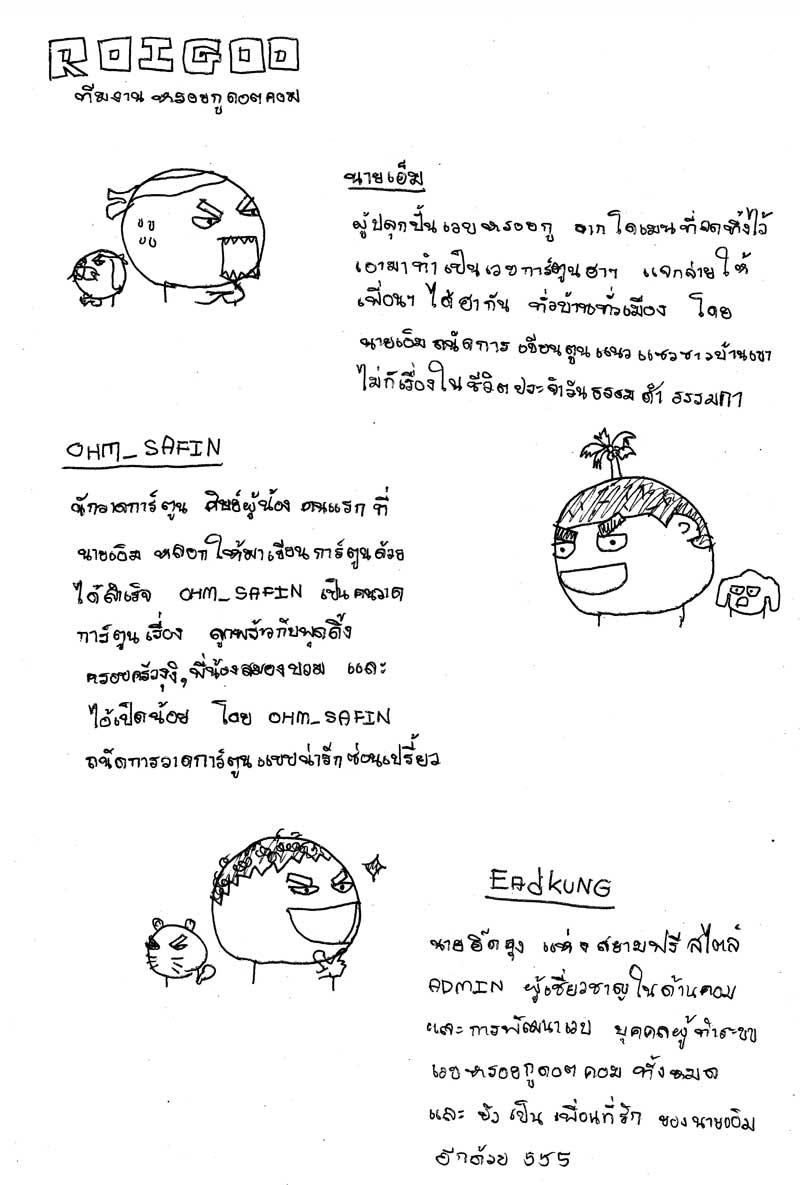 ROIGOO
ทีมงาน หรอยกู ดอต คอม
นายเอ็ม
ผู้ปลุกปั้น เวบ หรอยกู จาก โดเมน ที่จดทิ้งไว้
เอามา ทำ เป็น เวบ การ์ตูน ฮาๆ แจกจ่าย ให้
เพื่อนๆ ได้ ฮา กัน ทั่วบ้านทั่วเมือง โดย
นายเอ็ม ถนัดการ เขียน ตูน แนว แซวชาวบ้านเขา
ไม่ก็เรื่อง ใน ชีวิต ประจำวัน ธรรมด๊า ธรรมดา
OHM_SAFIN
นักวาดการ์ตูน ศิษย์ผู้น้อง คนแรก ที่
นายเอ็ม หลอก ให้มา เขียน การ์ตูน ด้วย
ได้สำเร็จ OHM_SAFIN เป็น คนวาด
การ์ตูน เรื่อง ลูกพร้าวกับพุดดิ้ง
ครอบครัวงุงิ, พี่น้องสมองบวม และ
ไอ้เป็ดน้อย โดย OHM_SAFIN
ถนัดการวาดการ์ตูน แบบน่ารักซ่อนเปรี้ยว
EAdKUNG
นายอี๊ดคุง แห่ง สยามฟรี สไตล์
ADMIN ผู้เชี่ยวชาญ ในด้านคอม
และ การพัฒนาเวบ บุคคลผู้ ทำระบบ
เวบ หรอยกูดอต คอม ทั้งหมด
และ ยัง เป็น เพื่อนที่รัก ของ นายเอ็ม
อีกด้วย 555